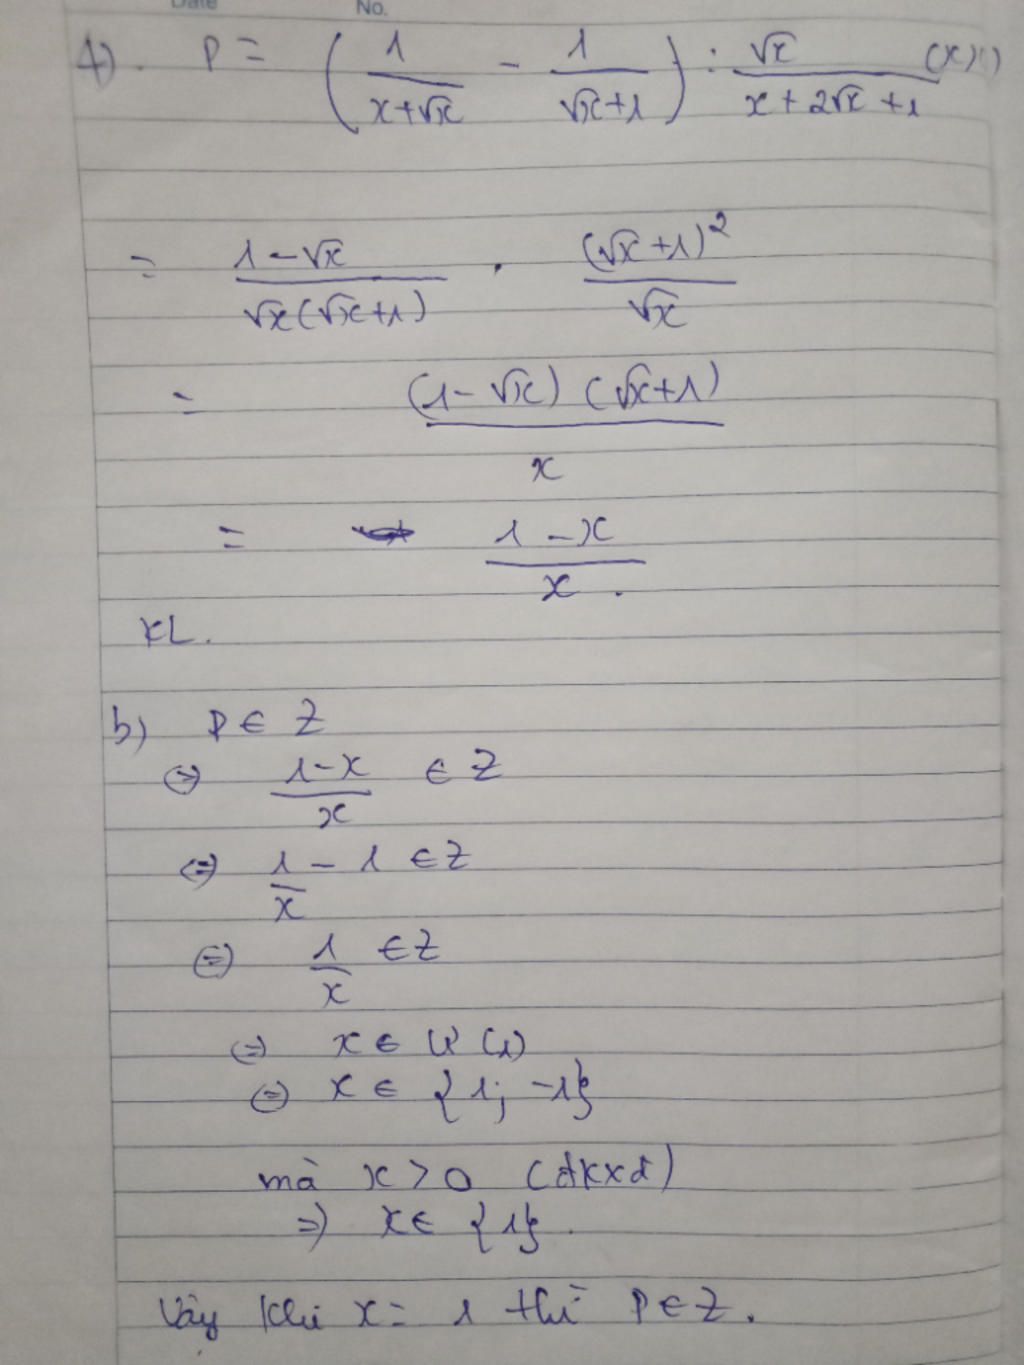 Date No.
4). P = (1/(x+√x) - 1/(√x+1)) : √x/(x+2√x+1)
= (1-√x)/(√x(√x+1)) . (√x+1)²/√x
= (1-√x)(√x+1)/x
= (1-x)/x .
KL.
b) P ∈ Z
⇔ (1-x)/x ∈ Z
⇔ 1/x - 1 ∈ Z
⇔ 1/x ∈ Z
⇔ x ∈ Ư(1)
⇔ x ∈ {1; -1}
mà x > 0 (đkxđ)
⇒ x ∈ {1}.
Vậy khi x = 1 thì P ∈ Z.